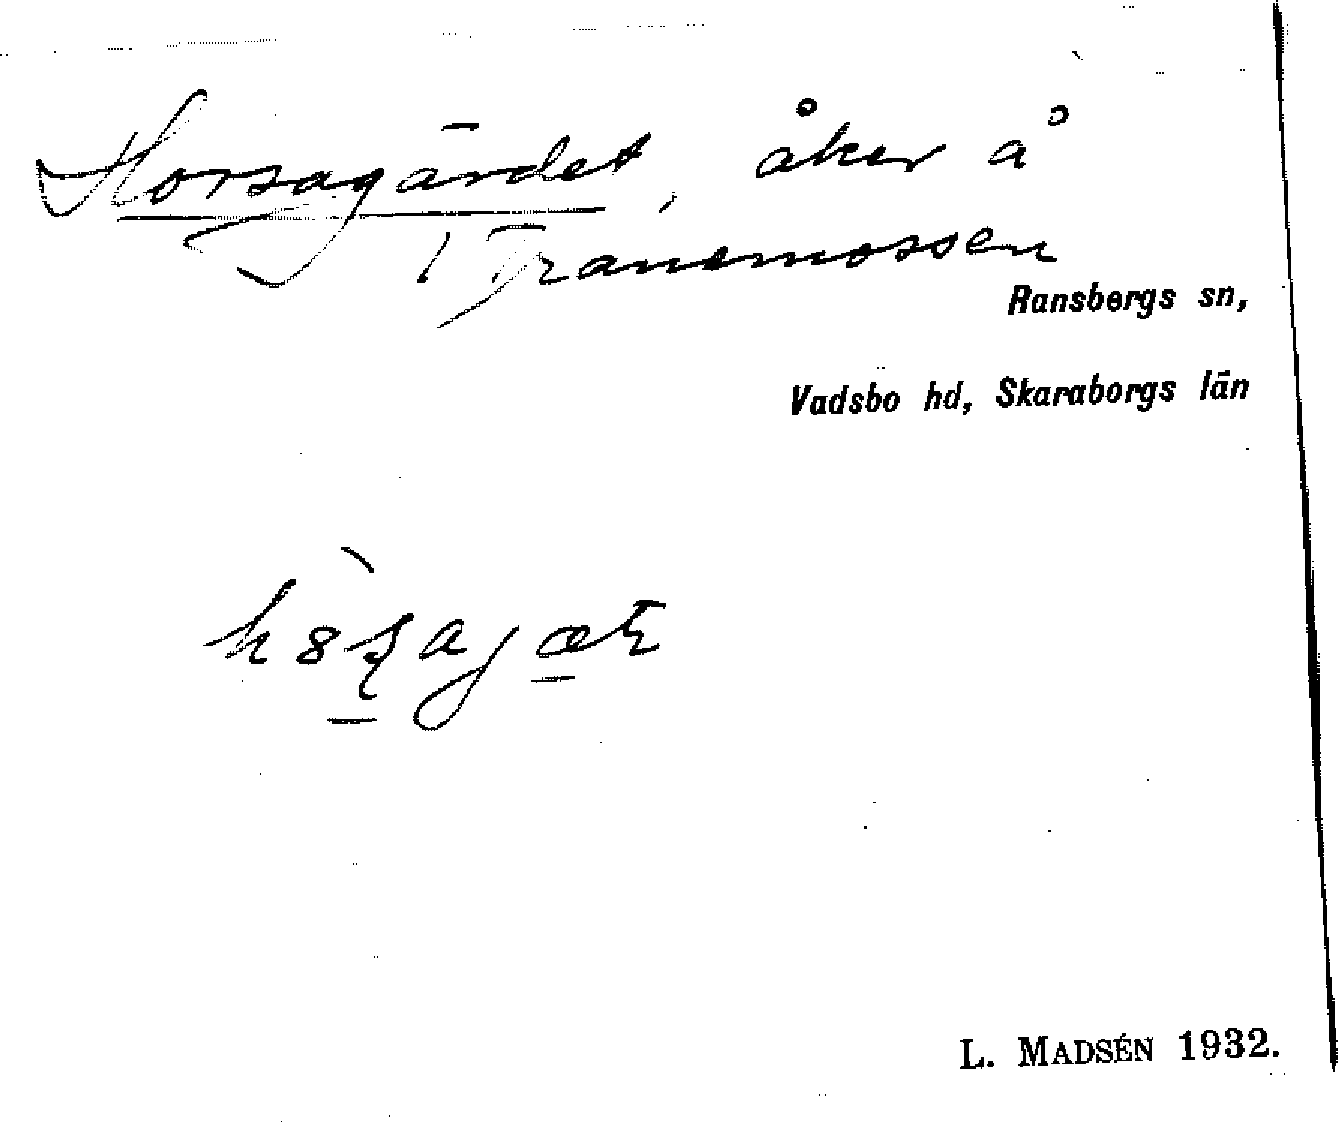 Horsagärdet, åker å
Tranemossen
Ransbergs sn,
Vadsbo hd, Skaraborgs län
L. MADSÉN 1932.